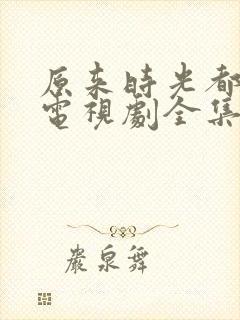 原来時光都
電視劇全集
嚴泉舞